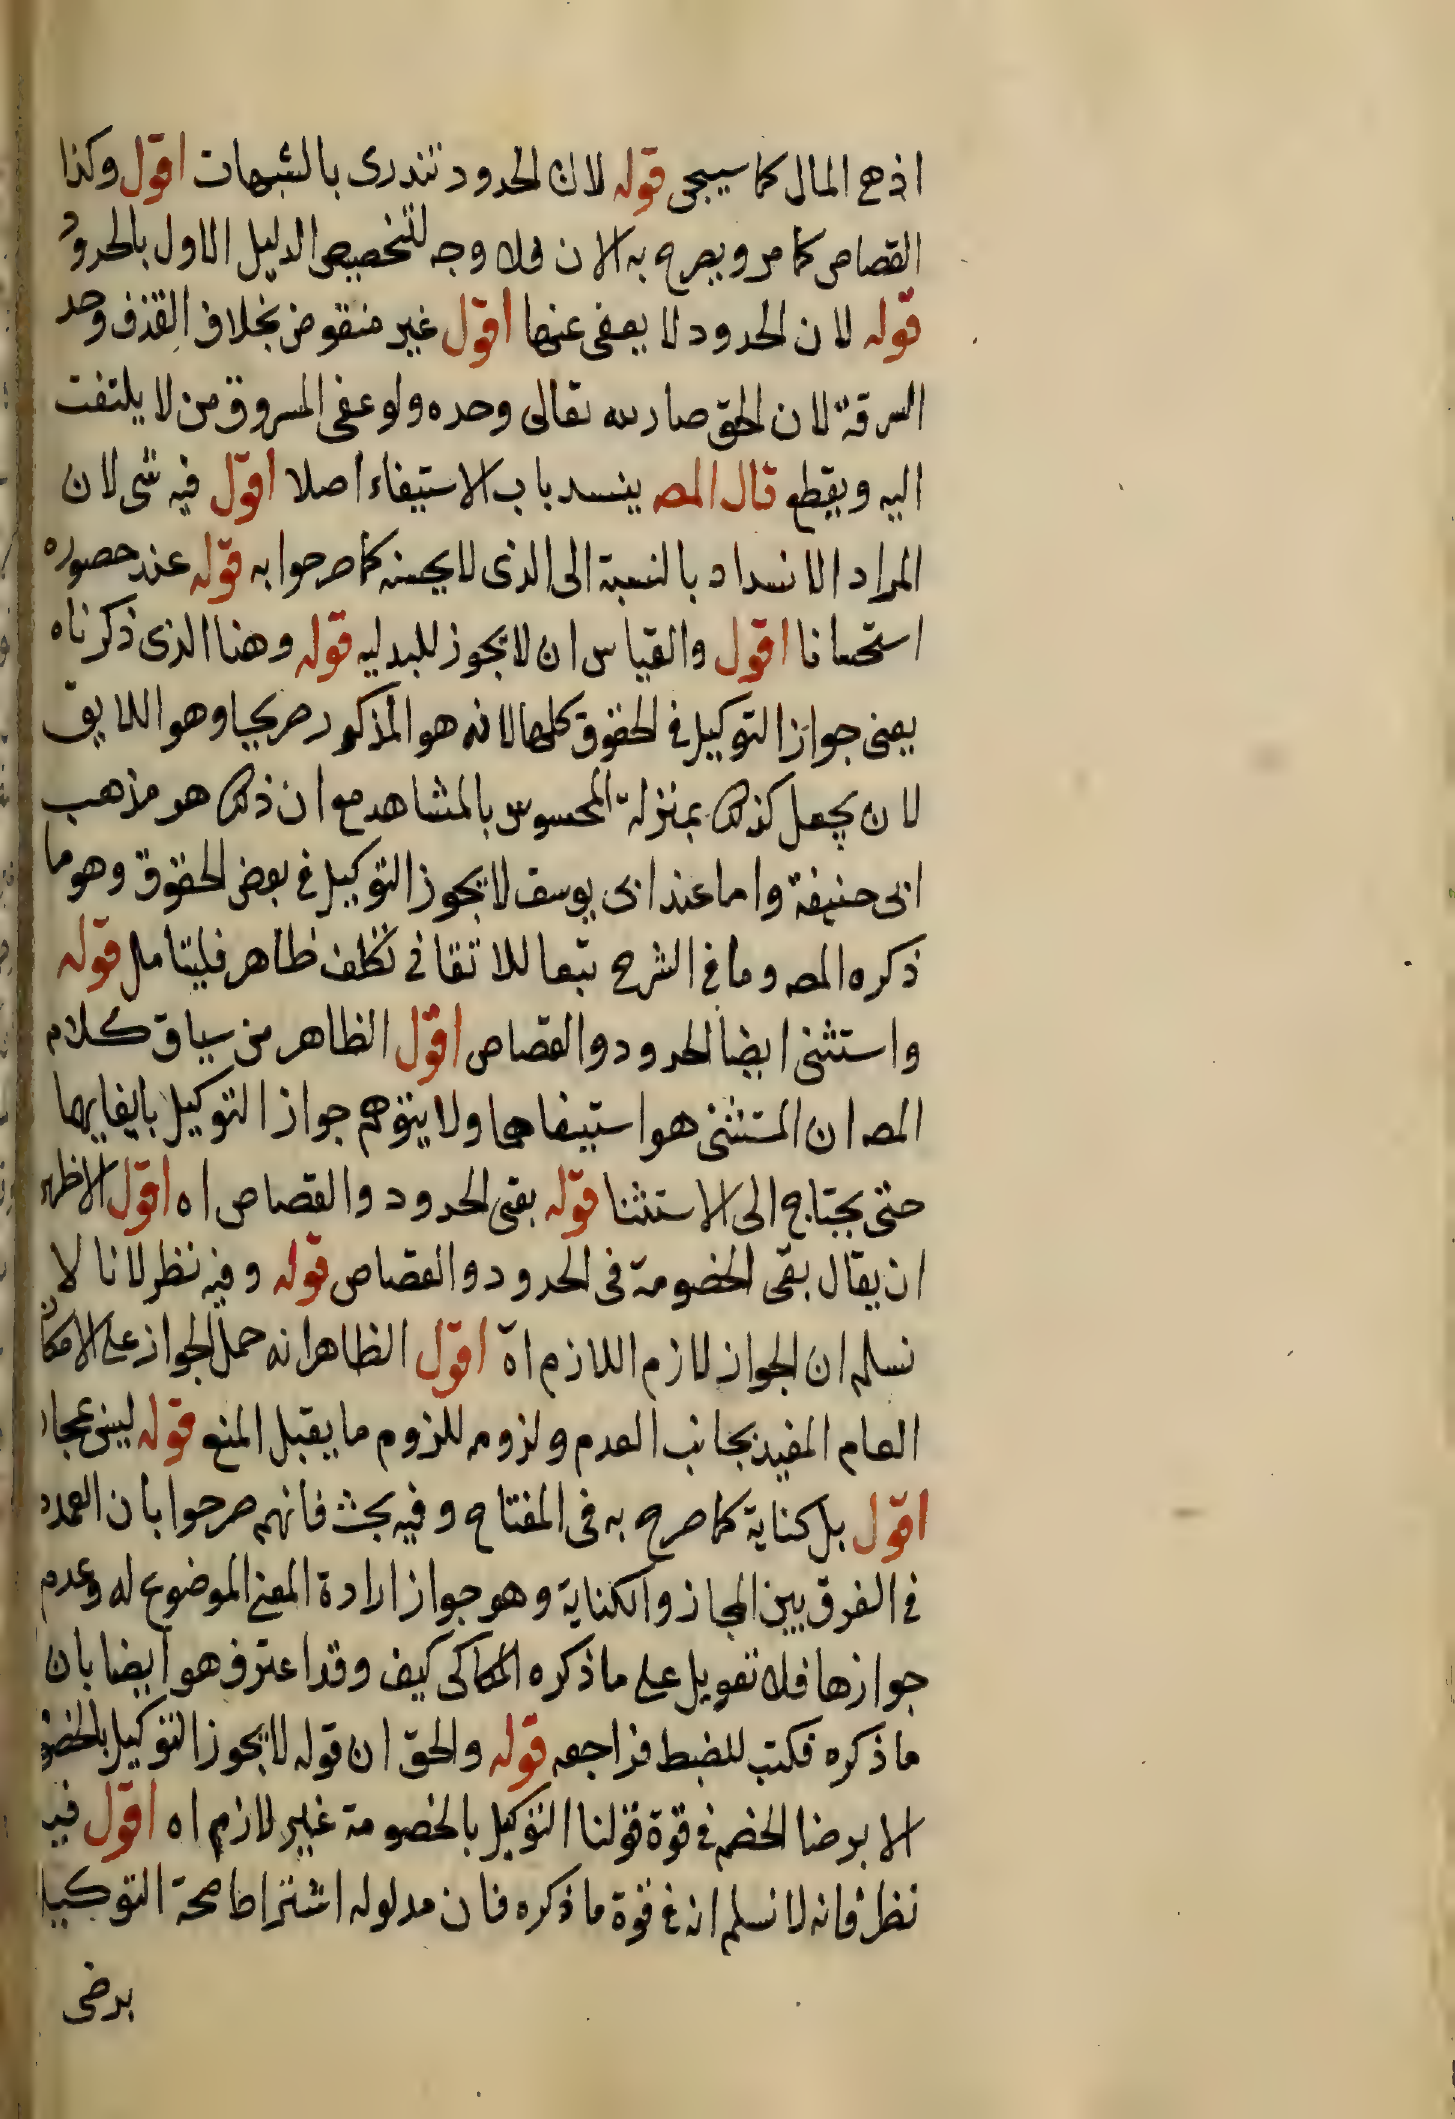 اذ هى المال كما سيجى قوله لان الحدود تندرى بالشبهات اقول وكذا
القصاص كما مر ويصرح به الان فلا وجه لتخصيص الدليل الاول بالحدود
قوله لان الحدود لا يعفى عنها اقول غير منقوض بخلاف القذف وحد
السرقة لان الحق صار لله تعالى وحده ولو عفى المسروق من لا يلتفت
اليه ويقطع قال المص ينسد باب الاستيفاء اصلا اقول فيه شى لان
المراد الانسداد بالنسبة الى الذى لا يحسنه كما صرحوا به قوله عند حضوره
استحسانا اقول والقياس ان لا يجوز للبدلية قوله وهنا الذى ذكرناه
يعنى جواز التوكيل فى الحقوق كلها لانه هو المذكور صريحا وهو اللايق
لان يجعل كذلك بمنزلة المحسوس بالمشاهد مع ان ذلك هو مذهب
ابى حنيفة واما عند ابى يوسف لا يجوز التوكيل فى بعض الحقوق وهو ما
ذكره المص وما فى الشرح تبعا للاتقانى تكلف ظاهر فليتامل قوله
واستثنى ايضا الحدود والقصاص اقول الظاهر من سياق كلام
المص ان المستثنى هو استيفاهما ولا يتوهم جواز التوكيل بايفايهما
حتى يحتاج الى الاستثنا قوله بقى الحدود والقصاص اه اقول الاظهر
ان يقال بقى الخصومة فى الحدود والقصاص قوله وفيه نظر لانا لا
نسلم ان الجواز لازم اللازم اه اقول الظاهر انه حمل الجواز على الامكان
العام المفيد بجانب العدم ولزومه للزوم ما يقبل المنع قوله ليس بمجاز
اقول بل كناية كما صرح به فى المفتاح وفيه بحث فانهم صرحوا بان العمدة
فى الفرق بين المجاز والكناية وهو جواز ارادة المعنى الموضوع له وعدم
جوازها فلا تعويل على ما ذكره السكاكى كيف وقد اعترف هو ايضا بان
ما ذكره فكتب للضبط فراجعه قوله والحق ان قوله لا يجوز التوكيل بالخصومة
الا برضا الخصم فى قوة قولنا التوكيل بالخصومة غير لازم اه اقول فيه
نظر فانه لا نسلم انه فى قوة ما ذكره فان مدلوله اشتراط صحة التوكيل
برضى